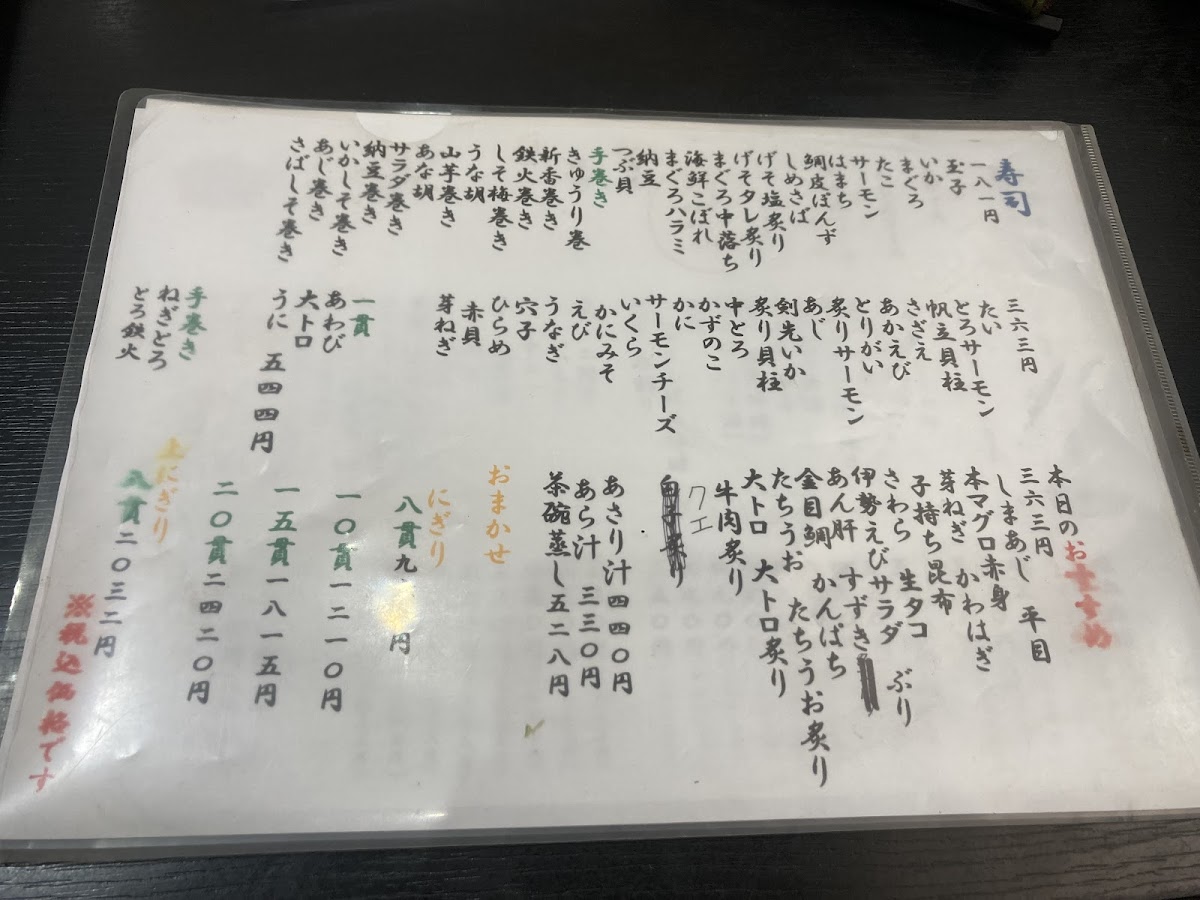 寿司
一八一円
玉子
いか
まぐろ
たこ
サーモン
はまち
鯛皮ぽんず
しめさば
げそ塩炙り
げそタレ炙り
まぐろ中落ち
海鮮こぼれ
まぐろハラミ
納豆
つぶ貝
手巻き
きゅうり巻
新香巻き
鉄火巻き
しそ梅巻き
うな胡
山芋巻き
あな胡
サラダ巻き
納豆巻き
いかしそ巻き
あじ巻き
さばしそ巻き
三六三円
たい
とろサーモン
帆立貝柱
さざえ
あかえび
とりがい
炙りサーモン
あじ
剣先いか
炙り貝柱
中とろ
かずのこ
かに
サーモンチーズ
いくら
かにみそ
えび
うなぎ
穴子
ひらめ
赤貝
芽ねぎ
一貫
あわび
大トロ
うに 五四四円
手巻き
ねぎとろ
とろ鉄火
本日のおすすめ
三六三円 平目
しまあじ
本マグロ赤身
芽ねぎ かわはぎ
子持ち昆布
さわら 生タコ
伊勢えびサラダ ぶり
あん肝 すずき
金目鯛 かんぱち
たちうお たちうお炙り
大トロ 大トロ炙り
牛肉炙り
クエ
あさり汁四四〇円
あら汁 三三〇円
茶碗蒸し五二八円
おまかせ
にぎり
八貫九 円
一〇貫一二一〇円
一五貫一八一五円
二〇貫二四二〇円
上にぎり
八貫二〇三二円
※税込価格です